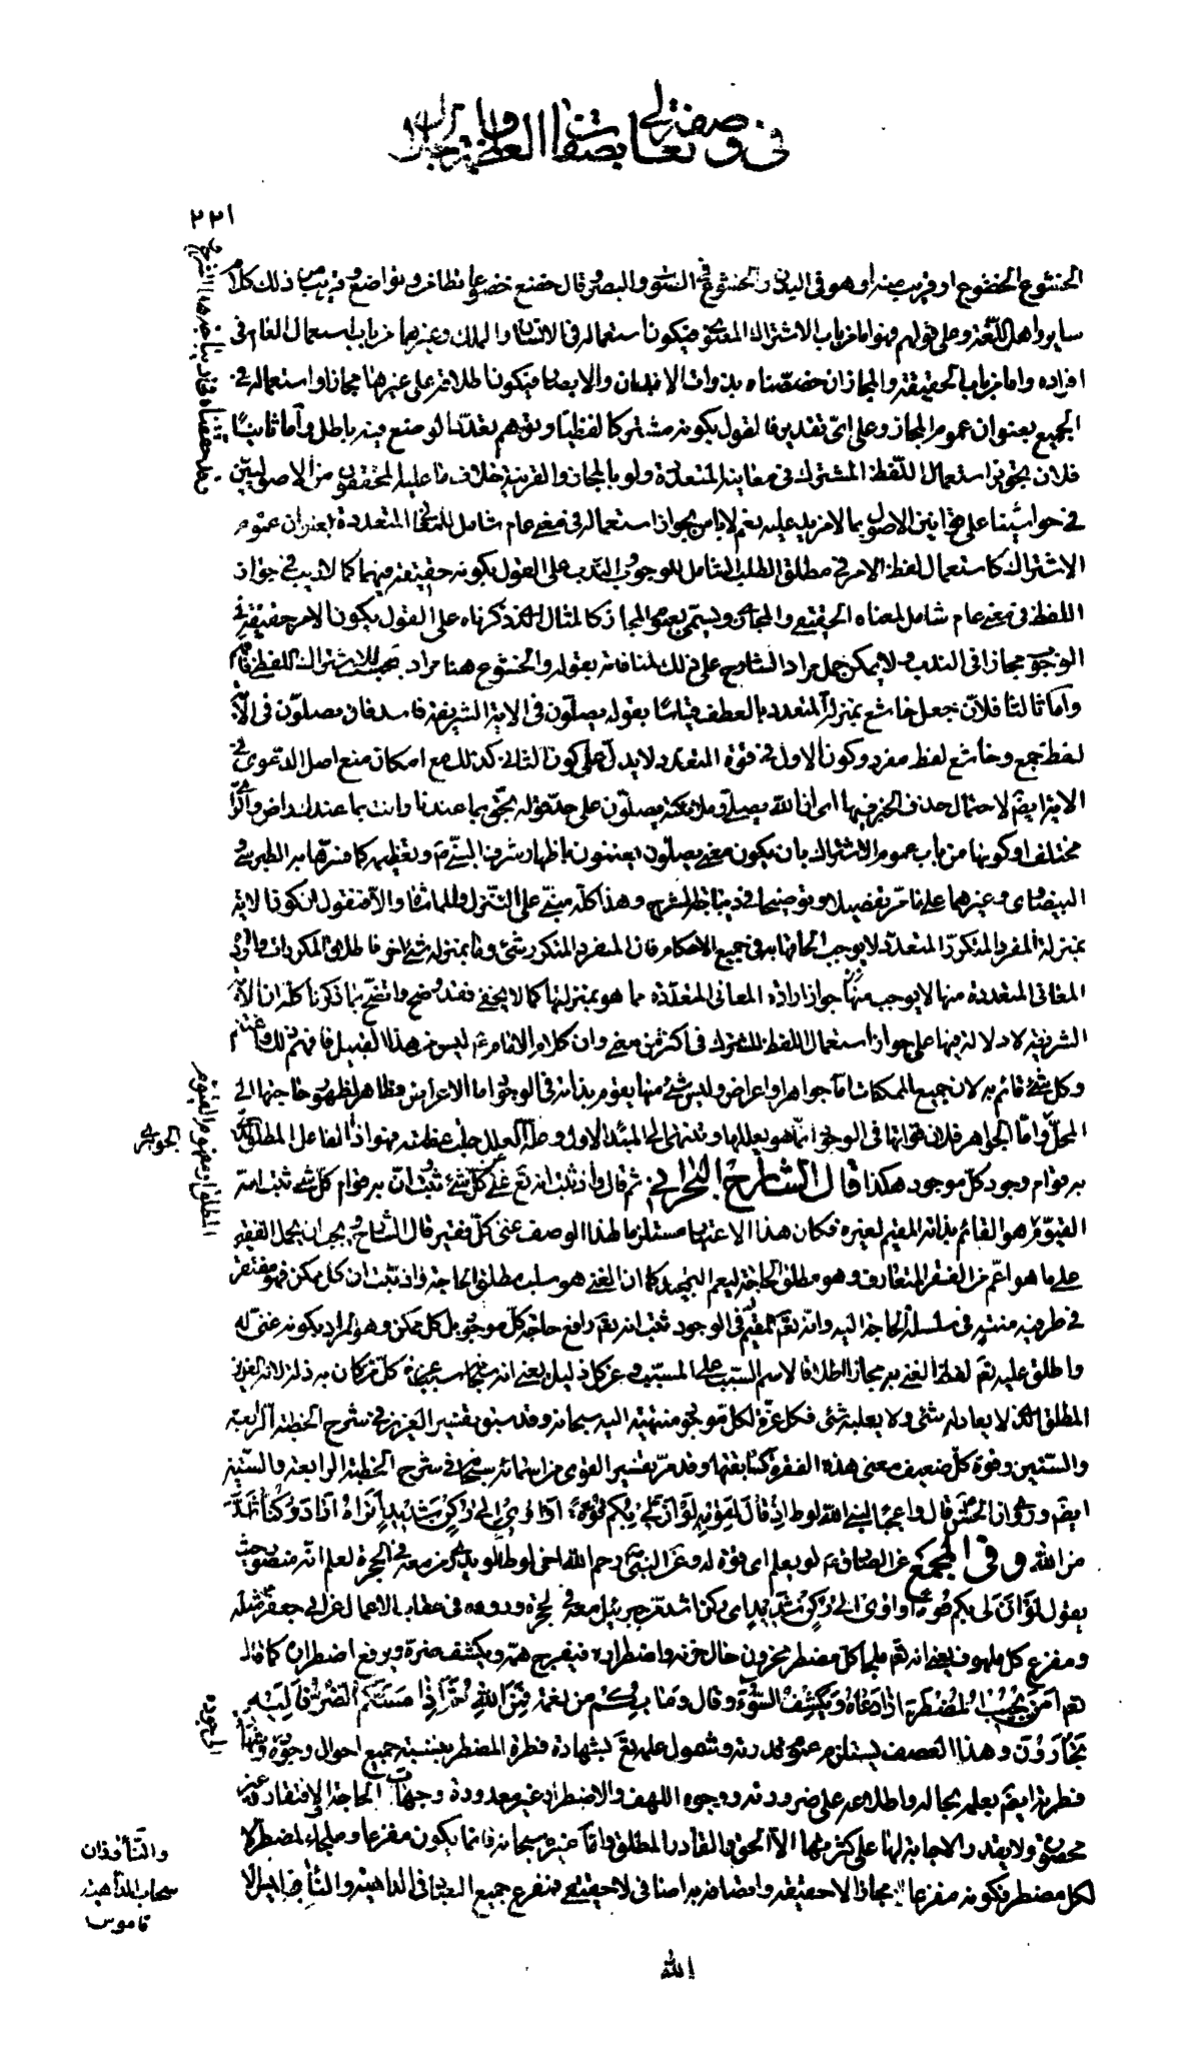 في وصفه تعالى بصفات العظمة والجلال
٢٢١
الخشوع الخضوع او قريب منه او هو في البدن والخشوع في الصوت والبصر وقال خضع خضوعا تطامن وتواضع وقريب من ذلك كلام
ساير اهل اللغة وعلى قولهم فهو اما من باب الاشتراك المعنوي فيكون استعماله في الانسان والملك وغيرهما من باب استعمال العام في
افراده واما من باب الحقيقة والمجاز ان خصصناه بذوات الابدان والابصار فيكون اطلاقه على غيرها مجازا واستعماله في
الجميع بعنوان عموم المجاز وعلى اي تقدير فالقول بكونه مشتركا لفظيا وتوهم تعدد الوضع فيه باطل واما ثانيا
فلان تجويز استعمال اللفظ المشترك في معانيه المتعددة ولو بالمجاز والقرينة خلاف ما عليه المحققون من الاصوليين
في حواشينا على قوانين الاصول بما لا مزيد عليه نعم لا باس بجواز استعماله في معنى عام شامل للمعاني المتعددة بعنوان عموم
الاشتراك كاستعمال لفظ الامر في مطلق الطلب الشامل للوجوب والندب على القول بكونه حقيقة فيهما كما لا ريب في جواز
اللفظ في معنى عام شامل لمعناه الحقيقي والمجازي ويسمى بعموم المجاز كالمثال الذي ذكرناه على القول بكون الامر حقيقة في
الوجوب مجازا في الندب ولا يمكن حمل مراد الشارح على ذلك لمنافاته بقوله والخشوع هنا مراد بحسب الاشتراك اللفظي
واما ثالثا فلان جعل خاشع بمنزلة المتعدد بالعطف قياسا بقوله يصلون في الاية الشريفة فاسد فان يصلون في الاية
لفظ جمع وخاشع لفظ مفرد وكون الاول في قوة المتعدد لا يدل على كون الثاني كذلك مع امكان منع اصل الدعوى في
الاية ايضا لاحتمال حذف الخبر فيها اى ان الله يصلي وملائكته يصلون على حد قوله نحن بما عندنا وانت بما عندك راض والراي
مختلف او كونها من باب عموم الاشتراك بان يكون معنى يصلون يعتنون باظهار شرف النبي ص وتعظيمه كما فسرها به الطبرسي و
البيضاوي وغيرهما على ما مر تفصيلا وتوضيحا في ديباجة الشرح وهذا كله مبني على التنزل والمماشاة والا فنقول ان كون الاية
بمنزلة المفرد المتكرر المتعدد لا يوجب الحاقها به في جميع الاحكام فان المفرد المتكرر شيء وما بمنزلته شيء اخر فاطلاق المكررات وارادة
المعاني المتعددة منها لا يوجب جواز ارادة المعاني المتعددة مما هو بمنزلتها كما لا يخفى فقد وضح واتضح بما ذكرنا كله ان الاية
الشريفة لا دلالة فيها على جواز استعمال اللفظ المشترك في اكثر من معنى وان كلام الامام ع ليس من هذا القبيل فافهم ذلك واغتنم
وكل شيء قائم به لان جميع الممكنات اما جواهر او اعراض وليس شيء منها يقوم بذاته في الوجود اما الاعراض فظاهر لظهور حاجتها الى
المحل واما الجواهر فلان قوامها في الوجود انما هو بعللها وتنتهى الى المبدء الاول وعلة العلل جلت عظمته فهو اذا الفاعل المطلق الذي
به قوام وجود كل موجود هكذا قال الشارح البحراني ثم قال واذ ثبت انه تع غني عن كل شيء ثبت ان به قوام كل شيء ثبت انه
القيوم هو القائم بذاته المقيم لغيره فكان هذا الاعتبار مستلزما لهذا الوصف غنى كل فقير قال الشارح يجب ان يحمل الفقير
على ما هو اعم من الفقر المتعارف وهو مطلق الحاجة ليعم التمجيد كما ان الغنى هو سلب مطلق الحاجة واذ ثبت ان كل ممكن فهو مفتقر
في طرفيه منتهيه في سلسلة الحاجة اليه وانه تعالى المقيم في الوجود ثبت انه تعالى رافع حاجة كل موجود بل كل ممكن وهو المراد بكونه غنى له
واطلق عليه تعالى لفظ الغنى مجازا اطلاقا لاسم السبب على المسبب وعز كل ذليل يعني انه سبحانه سبب عزة كل من كان به ذل لانه العزيز
المطلق الذي لا يعادله شيء ولا يغلبه شيء فكل عزة لكل موجود منتهية اليه سبحانه وقد سبق تفسير العزيز في شرح الخطبة الرابعة
والستين وقوة كل ضعيف معنى هذه الفقرة كسابقتها وقد مر تفسير القوى من اسمائه سبحانه في شرح الخطبة الرابعة والستين
ايضا وروي ان الحسن قال واعجبا لنبي الله لوط اذ قال لقومه لَوْ اَنَّ لِي بِكُمْ قُوَّةً اَوْ آوِي اِلَى رُكْنٍ شَدِيدٍ اتراه اراد ركنا اشد
من الله وفى المجمع عن الصادق ع لو يعلم اى قوة له وعن النبي ص رحم الله اخى لوطا لو يدرى من معه في الحجرة لعلم انه منصور حيث
يقول لَوْ اَنَّ لِي بِكُمْ قُوَّةً اَوْ آوِي اِلَى رُكْنٍ شَدِيدٍ اى ركن اشد من جبرئيل معه في الحجرة ورواه في عقاب الاعمال عن ابي جعفر ع مثله
ومفزع كل ملهوف يعني انه تعالى ملجأ كل مضطر محزون حال حزنه واضطراره فيفرج همه ويكشف ضره ويرفع اضطراره كما قال
تعالى اَمَّنْ يُجِيبُ الْمُضْطَرَّ اِذَا دَعَاهُ وَيَكْشِفُ السُّوءَ وقال وَمَا بِكُمْ مِنْ نِعْمَةٍ فَمِنَ اللهِ ثُمَّ اِذَا مَسَّكُمُ الضُّرُّ فَاِلَيْهِ
تَجْأَرُونَ وهذا الوصف يستلزم عموم قدرته وشمول علمه تعالى لشهادة فطرة المضطر بنسبته جميع احوال وجوده وشهادة
فطرته ايضا بعلمه بحاله واطلاعه على ضرورته ووجوه اللهف والاضطراب غير معدودة وجهات الحاجة والافتقار غير
محصورة ولا يقدر والاجابة لها على كثرتها الا الحق والقادر المطلق واما غيره سبحانه فانما يكون مفزعا وملجاء لمضطر لا
لكل مضطر فكونه مفزعا مجاز لا حقيقة وامضافه اضافى لا حقيقي فمفزع جميع العباد في الداهية والنآد في الليل
الله
الجوهري
المطلق او مفهوم القيوم
الى جوده
والنآد
سحاب الداهية
قاموس